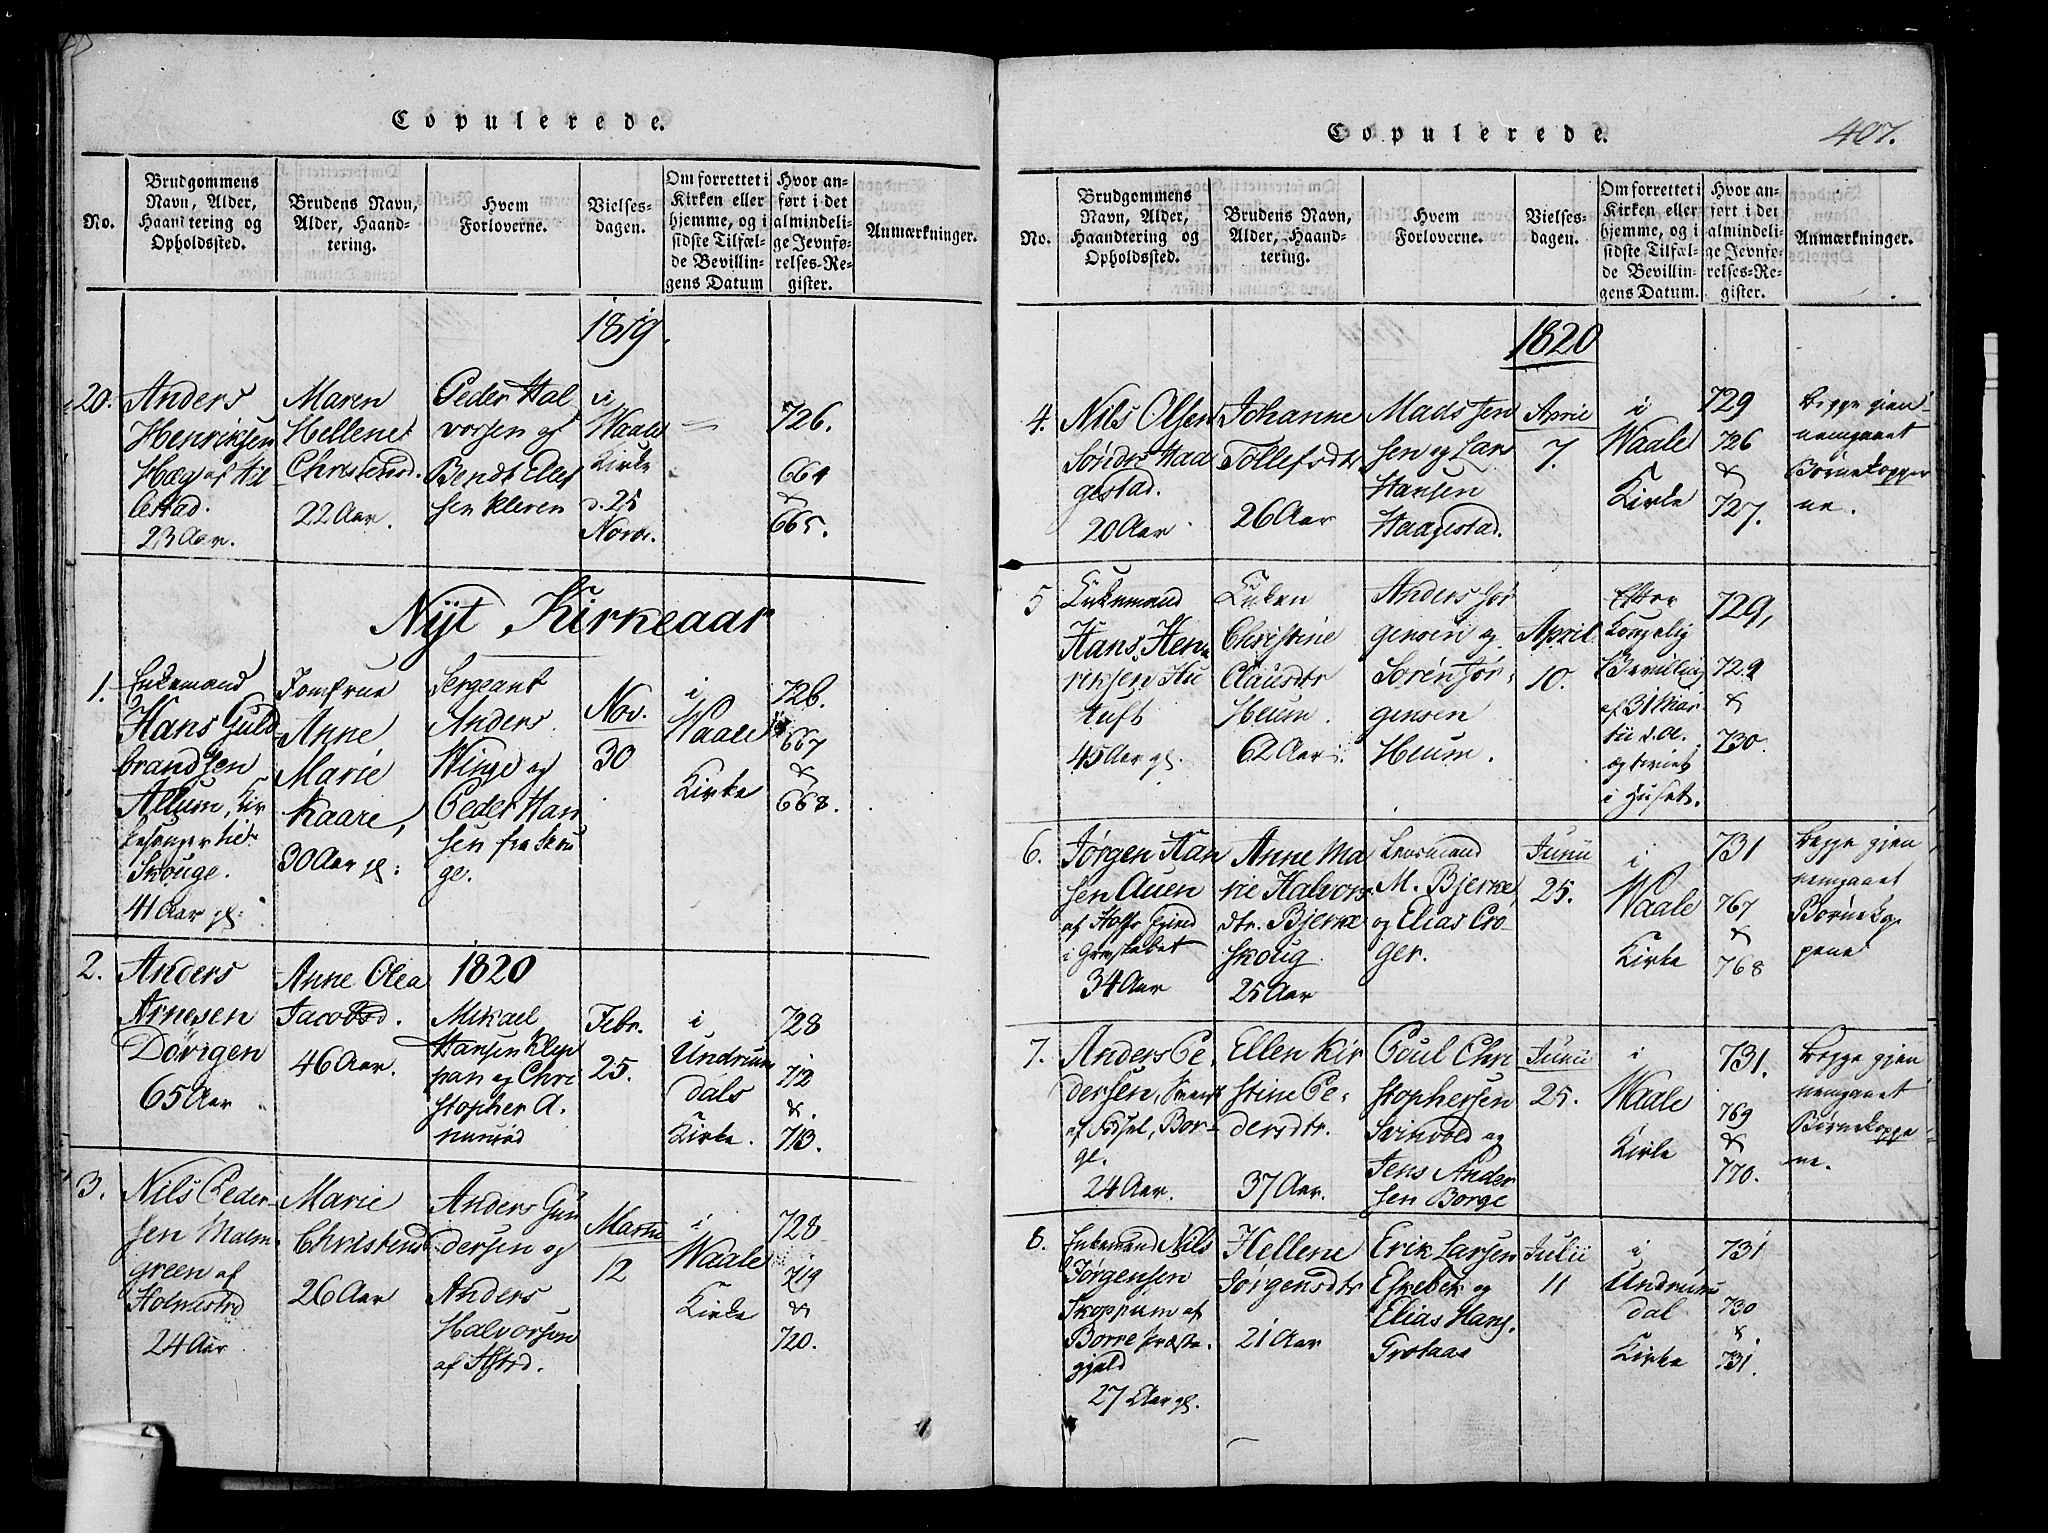 Copulerede.
No.
Brudgommens
Navn, Alder,
Haandtering og
Opholdssted.
Brudens Navn,
Alder, Haand-
tering.
Hvem
Forloverne.
Vielses-
dagen.
Om forrettet i
Kirken eller
hjemme, og i
sidste Tilfæl-
de Bevillin-
gens Datum
Hvor an-
ført i det
almindeli-
ge Jevnfø-
relses-Re-
gister.
Anmærkninger.
1819.
20.
Anders
Henriksen
Hæg af Hil
lestad.
23 Aar.
Maren
Hellene
Christensd.
22 Aar.
Peder Hal
vorsen og
Bendt Ellef
sen Kleven
i
Waale
Kirke
d. 25
Novbr.
726.
664
&
665.
Nyt Kirkeaar
1.
Enkemand
Hans Guld
brandsen
Allum, Kir
kesanger til
Skouge.
41 Aar gl:
Jomfrue
Anne
Marie
Kaare,
30 Aar gl:
Sergeant
Anders
Winge og
Peder Han
sen fra Skou
ge.
Nov.
30
i
Waale
Kirke
726.
667
&
668.
2.
Anders
Arnesen
Dørigen
65 Aar
Anne Olea
Jacobsd.
46 Aar.
1820
Mikael
Hansen Klep
pan og Chri
stopher A.
Febr.
25.
i
Undrum
dals
Kirke.
728
712
&.
713.
3.
Nils Peder-
sen Malm-
green af
Holmestrd
24 Aar
Marie
Christensd
26 Aar
Anders Gun
dersen og
Anders
Halvorsen
af
Martii
12
i
Waale
Kirke
728
719
&
720.
Copulerede.
407.
No.
Brudgommens
Navn, Alder,
Haandtering og
Opholdssted.
Brudens Navn,
Alder, Haand-
tering.
Hvem
Forloverne.
Vielses-
dagen.
Om forrettet i
Kirken eller
hjemme, og i
sidste Tilfæl-
de Bevillin-
gens Datum.
Hvor an-
ført i det
almindeli-
ge Jevnfø-
relses-Re-
gister.
Anmærkninger.
1820
4.
Nils Olsen
Sønder Haa
gestad.
20 Aar
Johanne
Tollefsdtr
26 Aar
Mads Jen
sen og Lars
Hansen
Haagestad.
April
7.
i
Waale
Kirke
729
726
&
727.
Begge gien-
nemgaaet
Børnekopper
ne.
5
Enkemand
Hans Hen
riksen Hu
tuft
45 Aar gl.
Enken
Christine
Clausdtr
Heum.
62 Aar.
Anders Jør
gensen og
Søren Jør-
gensen
Heum.
April
10.
Efter
Kongelig
Bevilling
af 31 Mar-
tii d. A.
og viet
i Huset.
729,
729
&
730.
6.
Jørgen Han
sen Auen
af Hoffs Gjeld
i Grevskabet
34 Aar
Anne Ma
rie Halvors
dtr. Bjerke
Skoug.
25 Aar
Lensmand
M. Bjerke,
og Elias Cro-
ger.
Junii
25.
i
Waale
Kirke
731
767
&
768
Begge gjen
nemgaaet
Børnekop
pene
7.
Anders Pe-
dersen,
af Fødsel, Bor-
ge.
24 Aar.
Ellen Kir
stine Pe-
dersdtr.
37 Aar.
Poul Chri
stophersen
Svinvold og
Jens Ander
sen Borge
Junii
25.
i
Waale
Kirke
731.
769
&
770.
Begge gjen
nemgaaet
Børnekoppe-
ne.
8.
Enkemand Nils
Jørgensen
Skoppum af
Borre Præste-
gjeld
27 Aar gl.
Hellene
Jørgensdtr
21 Aar
Erik Larsen
Eskebek og
Elias Hans.
Grotaas
Julii
11
i
Undrum
dal
Kirke
731
730
&.
731.